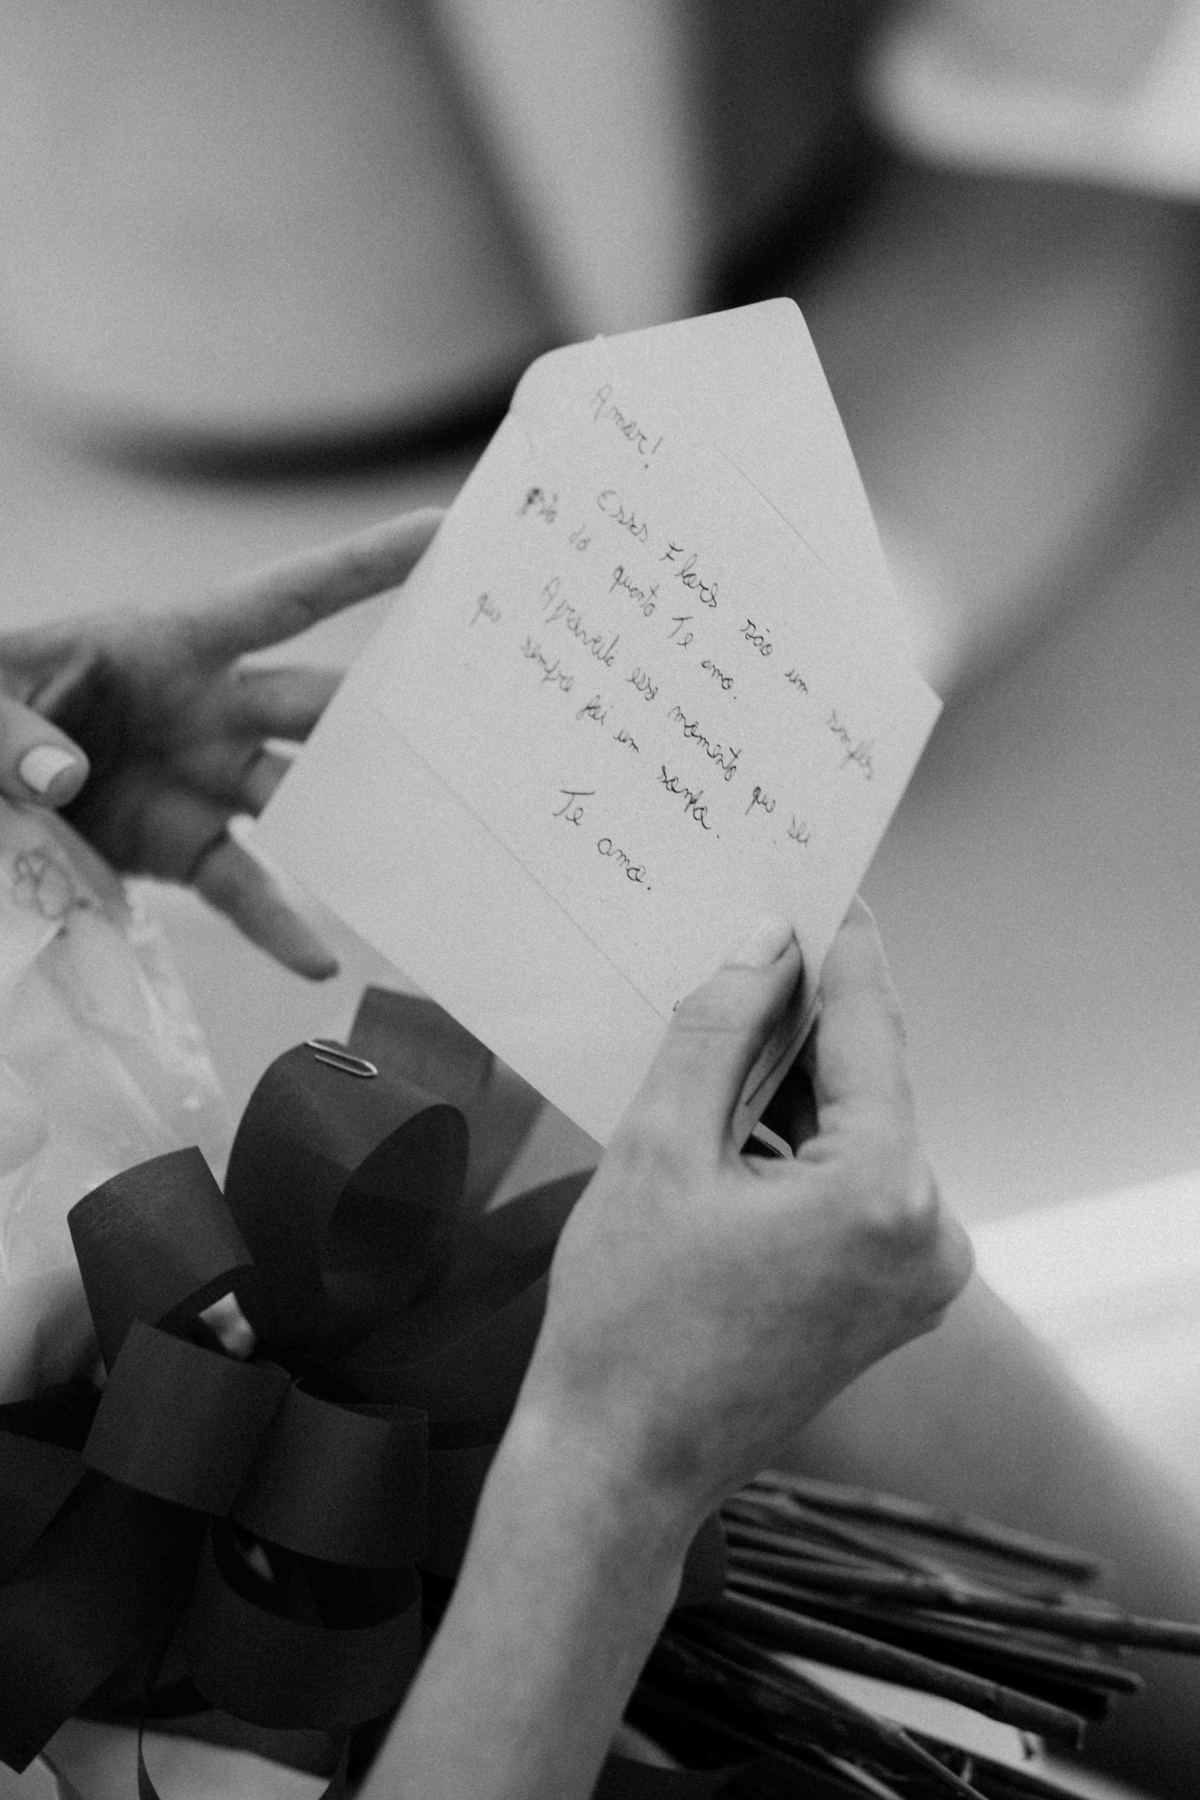 Amor!
Essas flores são um simples
gesto do quanto Te amo.
Aproveita esse momento que sei
que sempre foi um sonho.
Te amo.